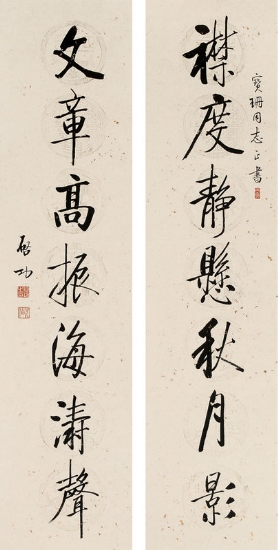 寶珊同志正書
襟度静懸秋月影
文章高振海濤聲
啟功